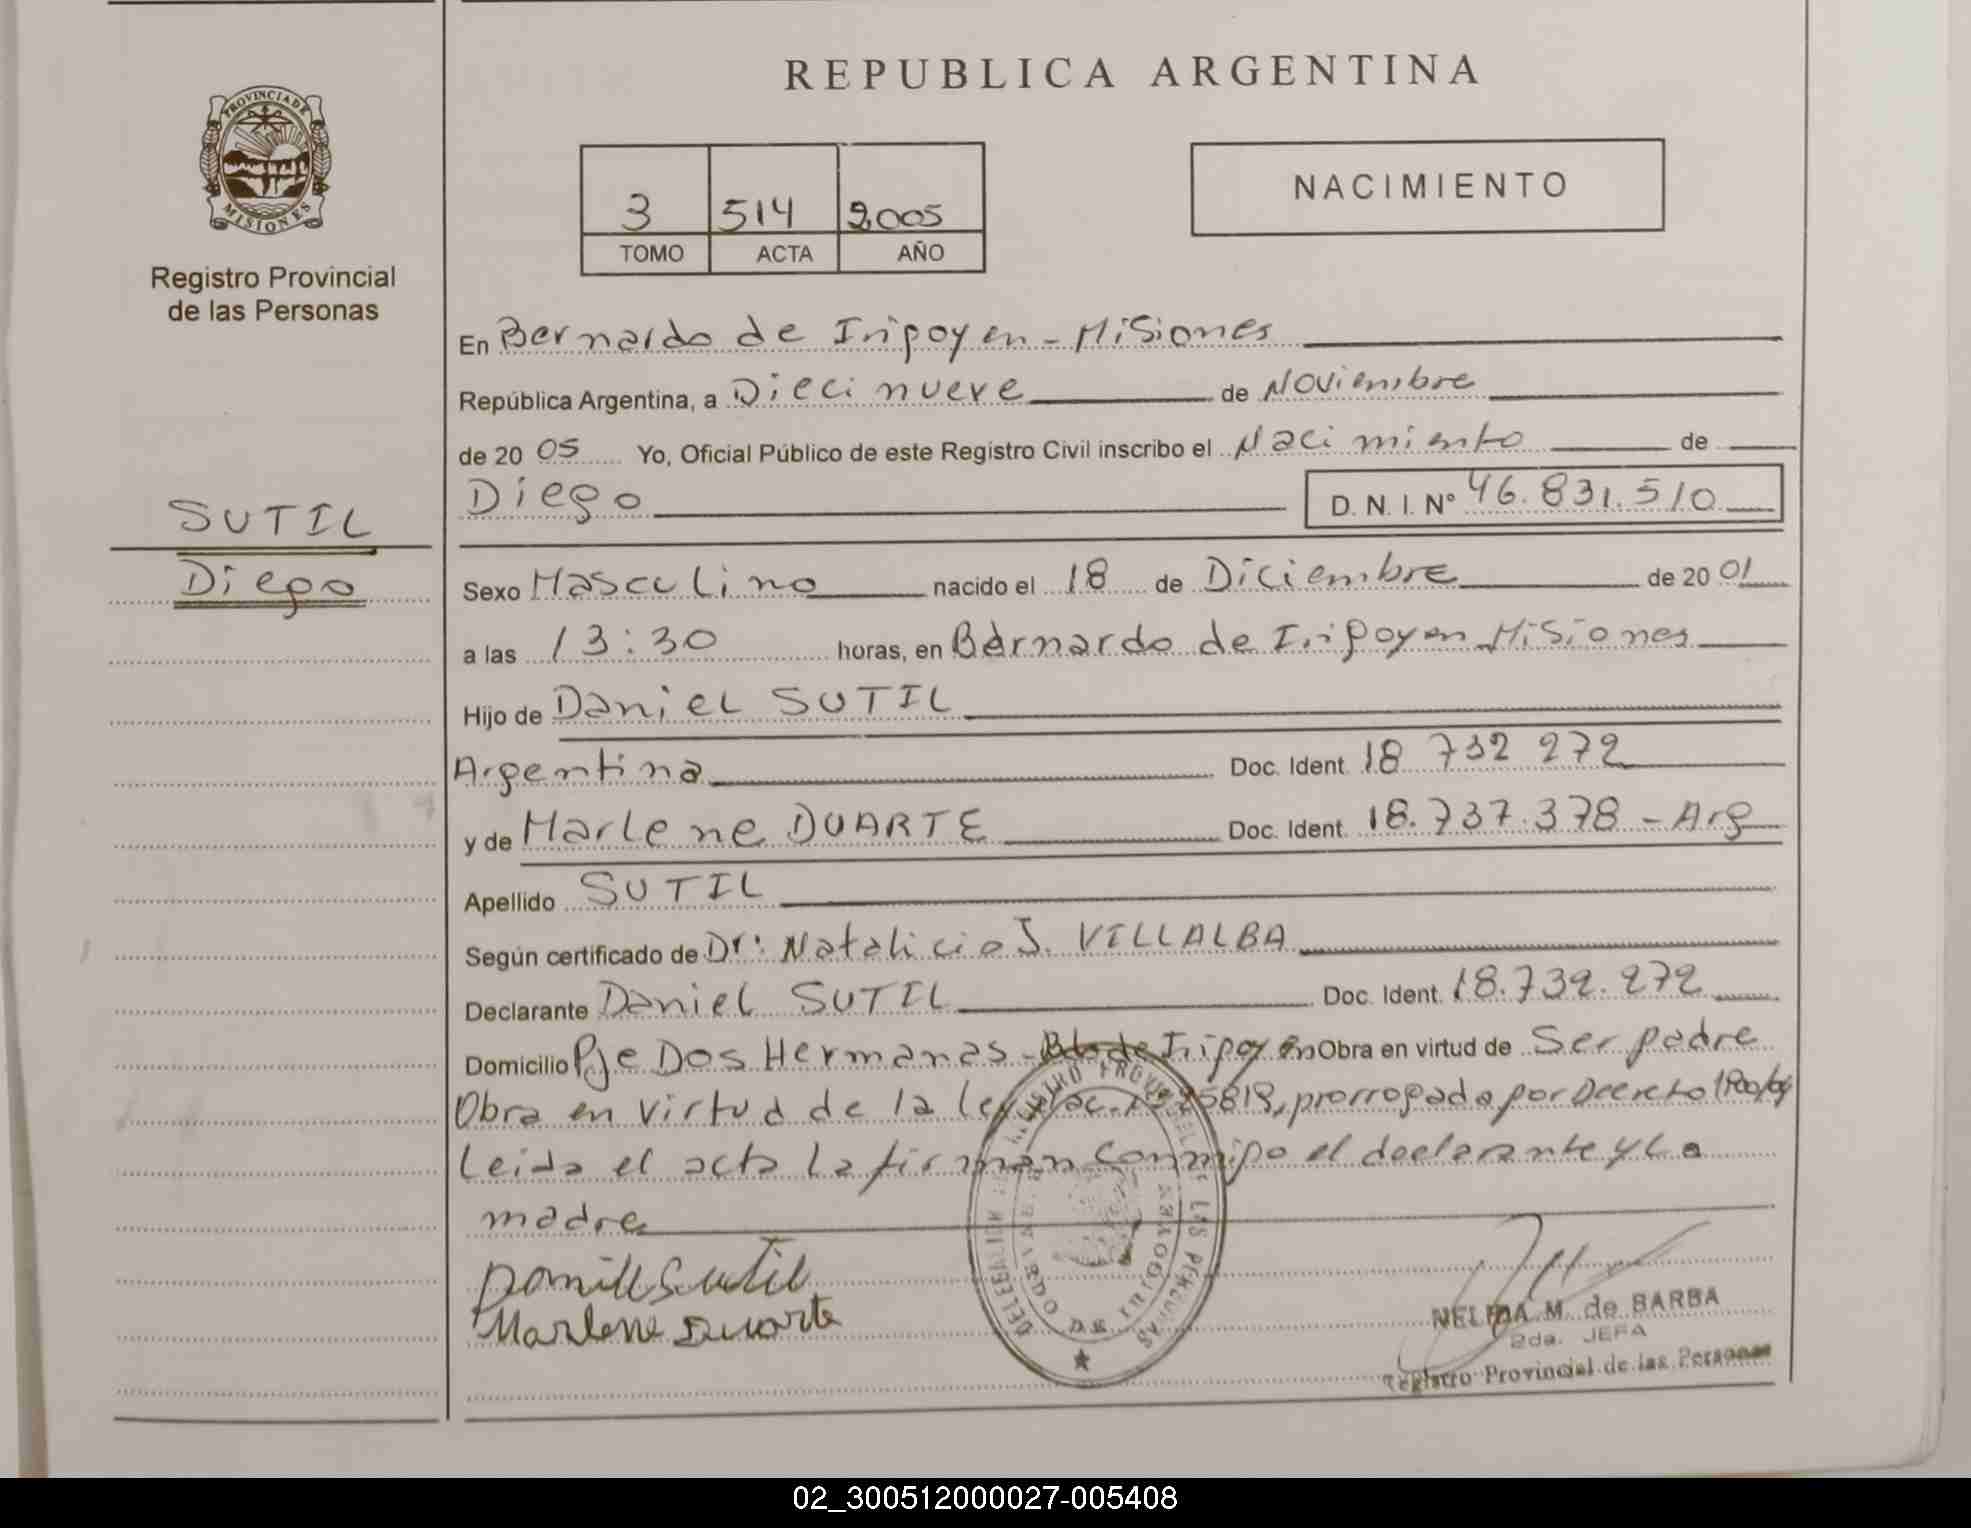 REPUBLICA ARGENTINA
PROVINCIA DE
MISIONES
Registro Provincial
de las Personas
3 514 2005
TOMO ACTA AÑO
NACIMIENTO
En Bernardo de Irigoyen - Misiones
República Argentina, a Diecinueve de Noviembre
de 2005 Yo, Oficial Público de este Registro Civil inscribo el Nacimiento de
Diego D. N. I. N° 46.831.510
SUTIL
Diego
Sexo Masculino nacido el 18 de Diciembre de 2001
a las 13:30 horas, en Bernardo de Irigoyen Misiones
Hijo de Daniel SUTIL
Argentina Doc. Ident. 18 732 272
y de Marlene DUARTE Doc. Ident. 18.737.378 - Arg
Apellido SUTIL
Según certificado de Dr: Natalicio J. VILLALBA
Declarante Daniel SUTIL Doc. Ident. 18.732.272
Domicilio Pje Dos Hermanas - Bdo de Irigoyen Obra en virtud de Ser padre
Obra en virtud de la ley Nac. 25819, prorrogada por Decreto
Leida el acta la firman conmigo el declarante y la
madre
Daniel Sutil
Marlene Duarte
NELIDA M. de BARBA
2da. JEFA
Registro Provincial de las Personas
02_300512000027-005408